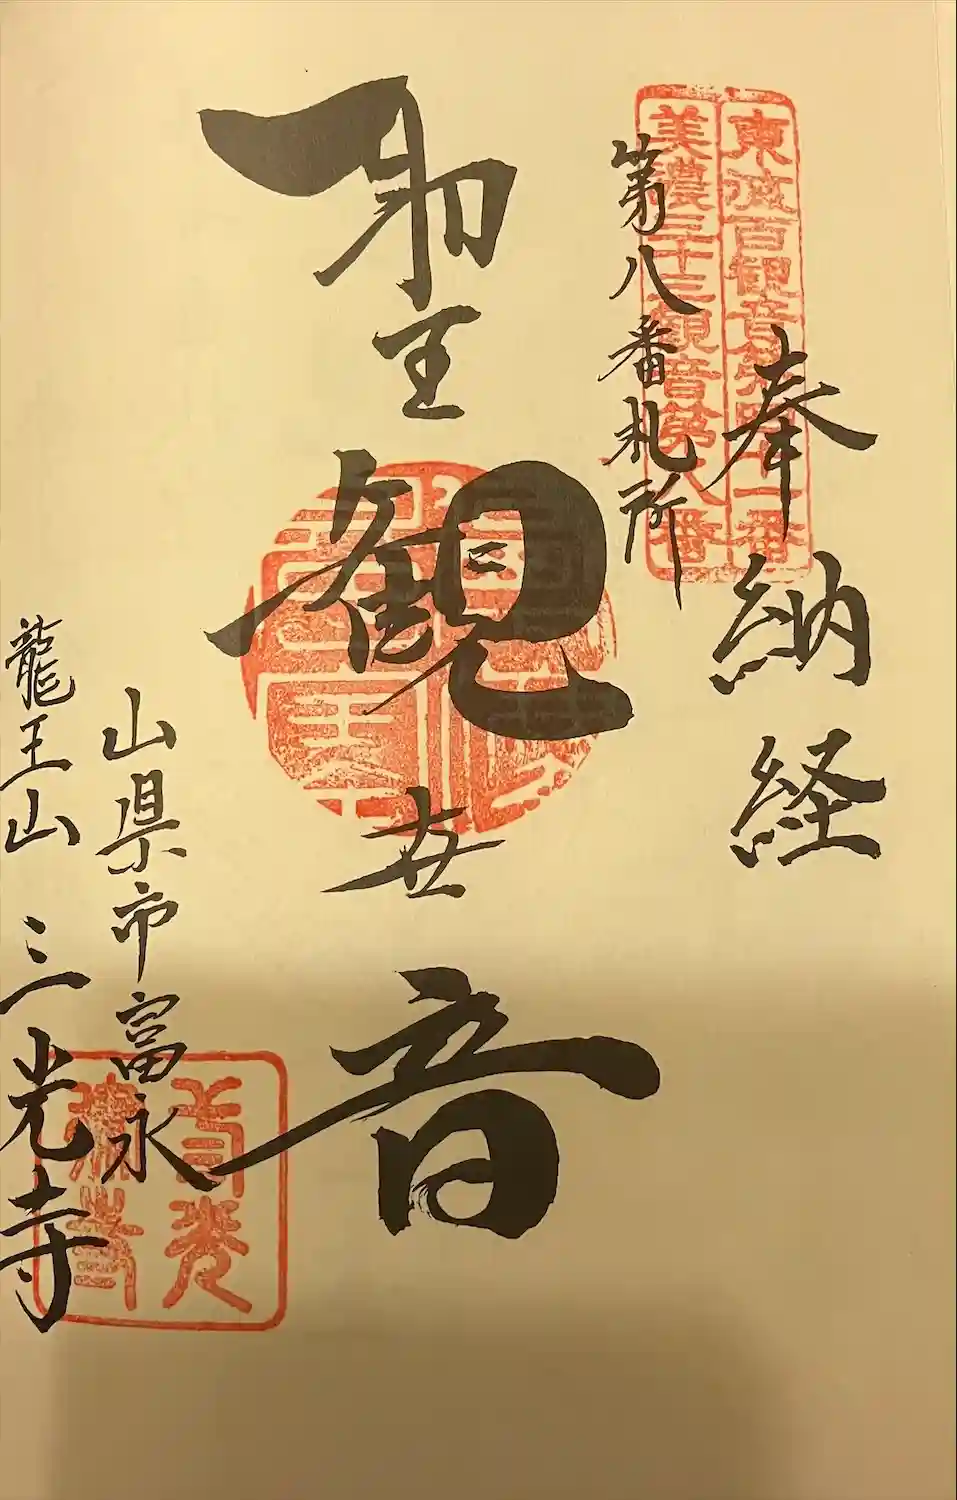 東海百観音第四十一番
美濃三十三観音第八番
奉納経
第八番札所
聖観世音
山県市富永
龍王山 三光寺